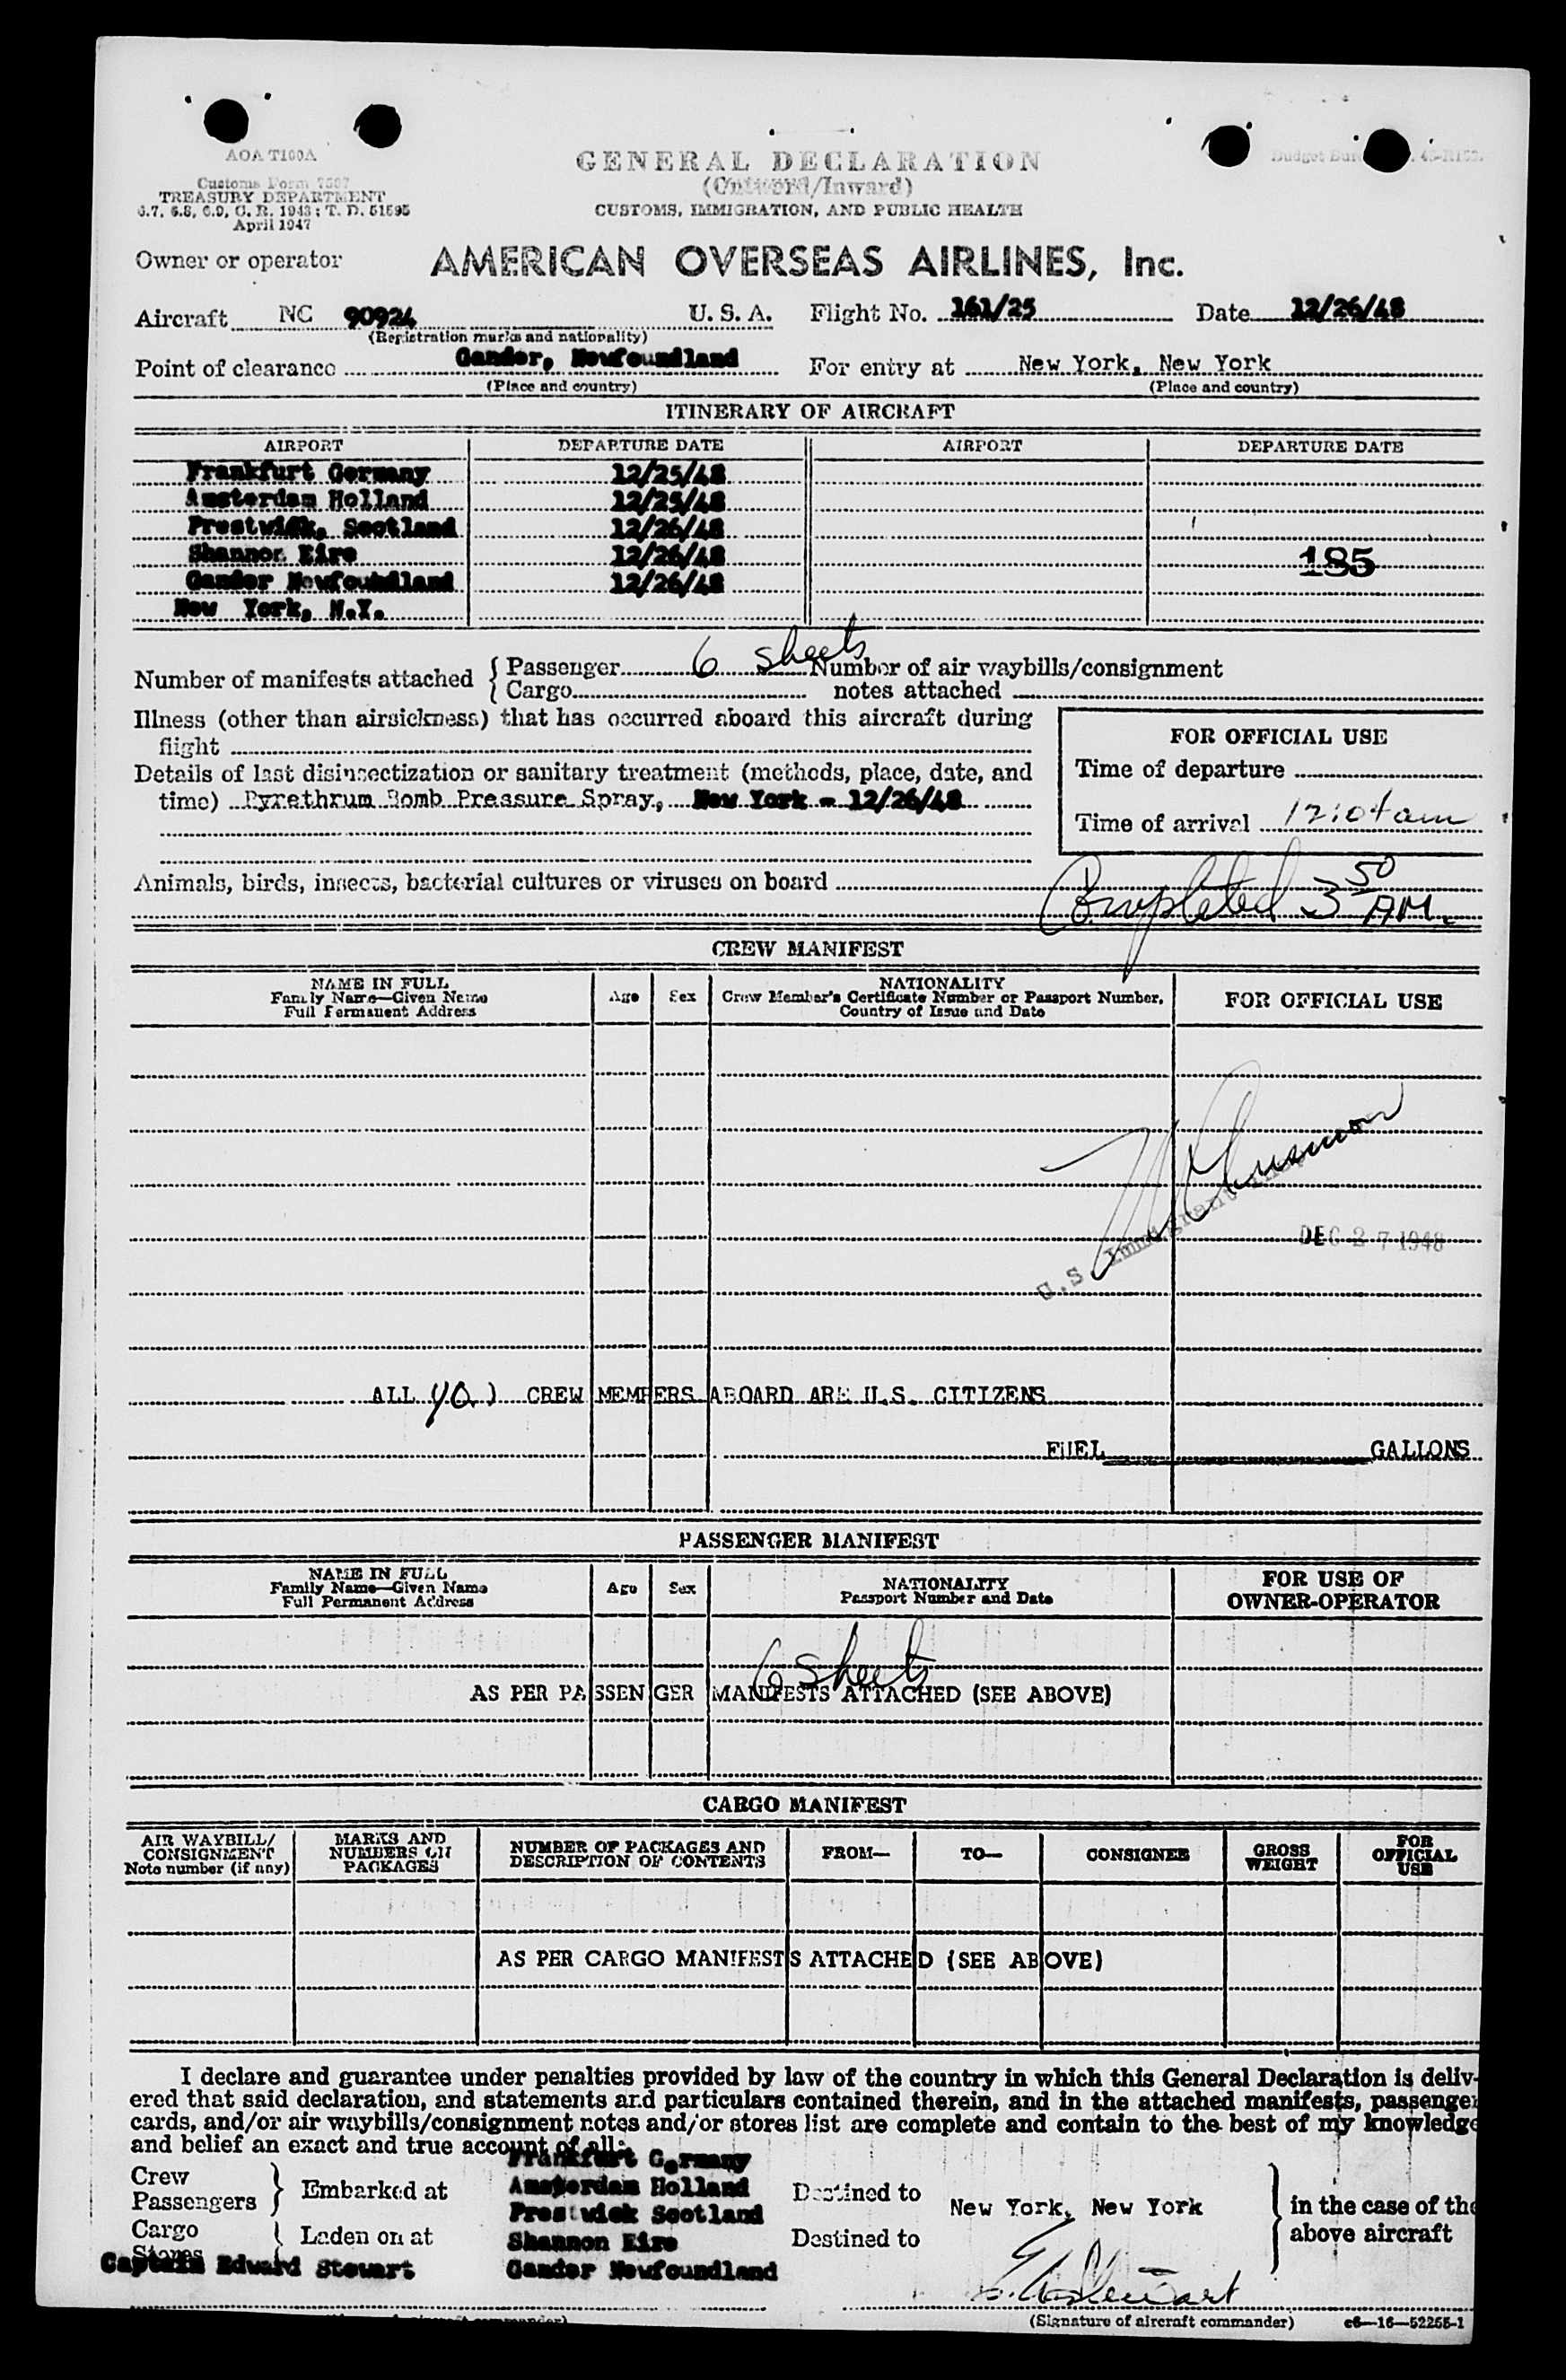 AOA T100A
Customs Form 7507
TREASURY DEPARTMENT
6.7, 6.8, 6.9, C. R. 1943; T. D. 51695
April 1947
GENERAL DECLARATION
(Outward/Inward)
CUSTOMS, IMMIGRATION, AND PUBLIC HEALTH
Budget Bur
Owner or operator AMERICAN OVERSEAS AIRLINES, Inc.
Aircraft NC 90924 U. S. A. Flight No. 161/25 Date 12/26/48
(Registration marks and nationality)
Point of clearance Gander, Newfoundland For entry at New York, New York
(Place and country) (Place and country)
ITINERARY OF AIRCRAFT
AIRPORT DEPARTURE DATE AIRPORT DEPARTURE DATE
Frankfurt Germany 12/25/48
Amsterdam Holland 12/25/48
Prestwick, Scotland 12/26/48
Shannon Eire 12/26/48 185
Gander Newfoundland 12/26/48
New York, N.Y.
Number of manifests attached { Passenger 6 sheets Number of air waybills/consignment
Cargo notes attached
Illness (other than airsickness) that has occurred aboard this aircraft during
flight
Details of last disinsectization or sanitary treatment (methods, place, date, and
time) Pyrethrum Bomb Pressure Spray, New York - 12/26/48
FOR OFFICIAL USE
Time of departure
Time of arrival 12:04 am
Animals, birds, insects, bacterial cultures or viruses on board
Completed 3 50 AM.
CREW MANIFEST
NAME IN FULL
Family Name—Given Name
Full Permanent Address
Age Sex
NATIONALITY
Crew Member's Certificate Number or Passport Number,
Country of Issue and Date
FOR OFFICIAL USE
U.S. Immigrant
DEC 27 1948
ALL (10) CREW MEMBERS ABOARD ARE U.S. CITIZENS
FUEL GALLONS
PASSENGER MANIFEST
NAME IN FULL
Family Name—Given Name
Full Permanent Address
Age Sex
NATIONALITY
Passport Number and Date
FOR USE OF
OWNER-OPERATOR
6 sheets
AS PER PASSENGER MANIFESTS ATTACHED (SEE ABOVE)
CARGO MANIFEST
AIR WAYBILL/
CONSIGNMENT
Note number (if any)
MARKS AND
NUMBERS ON
PACKAGES
NUMBER OF PACKAGES AND
DESCRIPTION OF CONTENTS
FROM— TO— CONSIGNEE
GROSS
WEIGHT
FOR
OFFICIAL
USE
AS PER CARGO MANIFESTS ATTACHED (SEE ABOVE)
I declare and guarantee under penalties provided by law of the country in which this General Declaration is deliv-
ered that said declaration, and statements and particulars contained therein, and in the attached manifests, passenger
cards, and/or air waybills/consignment notes and/or stores list are complete and contain to the best of my knowledge
and belief an exact and true account of all:
Frankfurt Germany
Crew
Passengers } Embarked at Amsterdam Holland Destined to New York, New York } in the case of the
Prestwick Scotland
Cargo
Stores { Laden on at Shannon Eire Destined to above aircraft
Captain Edward Stewart Gander Newfoundland
E. Stewart
(Signature of aircraft commander) c6—16—52255-1